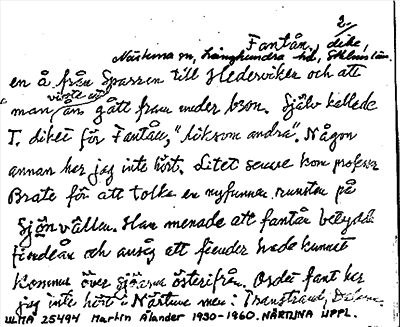 2.
Fantån, dike,
Närtuna sn, Långhundra hd, Sthlms län.
en å från Sparren till Hederviken och att
visste att
man ån gått fram under bron. Själv kallade
T. diket för Fantån, "liksom andra". Någon
annan har jag inte hört. Litet senare kom professor
Brate för att tolka en nyfunnen runsten på
Sjönvällen. Han menade att fantån betydde
fiendeån och ansåg att fiender hade kunnat
komma över sjöarna österifrån. Ordet fant har
jag inte hört i Närtuna men i Transtrand, Dalarna.
ULMA 25494 Martin Ålander 1930-1960. NÄRTUNA UPPL.